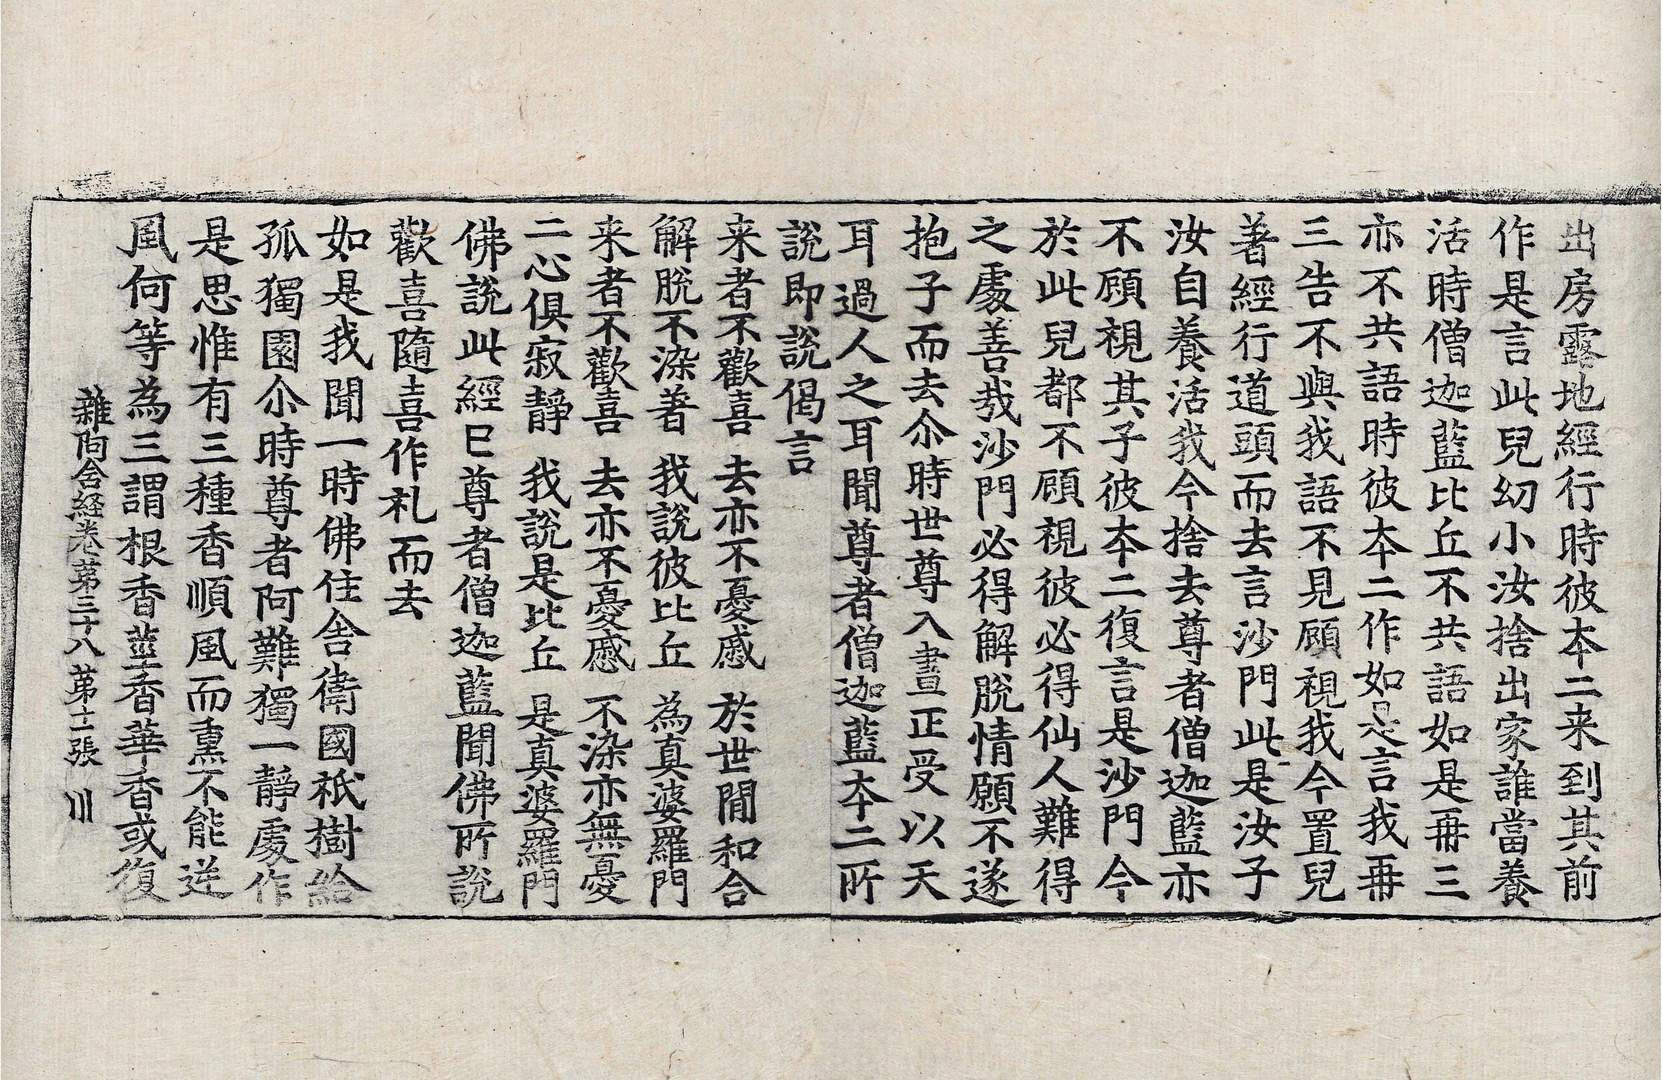 出房露地經行時彼本二来到其前
作是言此兒幻小汝捨出家誰當養
活時僧迦藍比丘不共語如是再三
亦不共語時彼本二作如是言我再
三告不與我語不見顧視我今置兒
著經行道頭而去言沙門此是汝子
汝自養活我今捨去尊者僧迦藍亦
不顧視其子彼本二復言是沙門今
於此兒都不顧視彼必得仙人難得
之處善㢤沙門必得解脫情願不遂
抱子而去尒時世尊入晝正受以天
耳過人之耳聞尊者僧迦藍本二所
說即說偈言
来者不歡喜　去亦不憂慼　於世間和合
解脫不染著　我說彼比丘　為真婆羅門
来者不歡喜　去亦不憂慼　不染亦無憂
二心俱寂靜　我說是比丘　是真婆羅門
佛說此經已尊者僧迦藍聞佛所說
歡喜隨喜作札而去
如是我聞一時佛住舍衛國祇樹給
孤獨園尒時尊者阿難獨一靜處作
是思惟有三種香順風而熏不能逆
風何等為三謂根香莖香華香或復
雜阿含経卷第三十八　第十二張　川